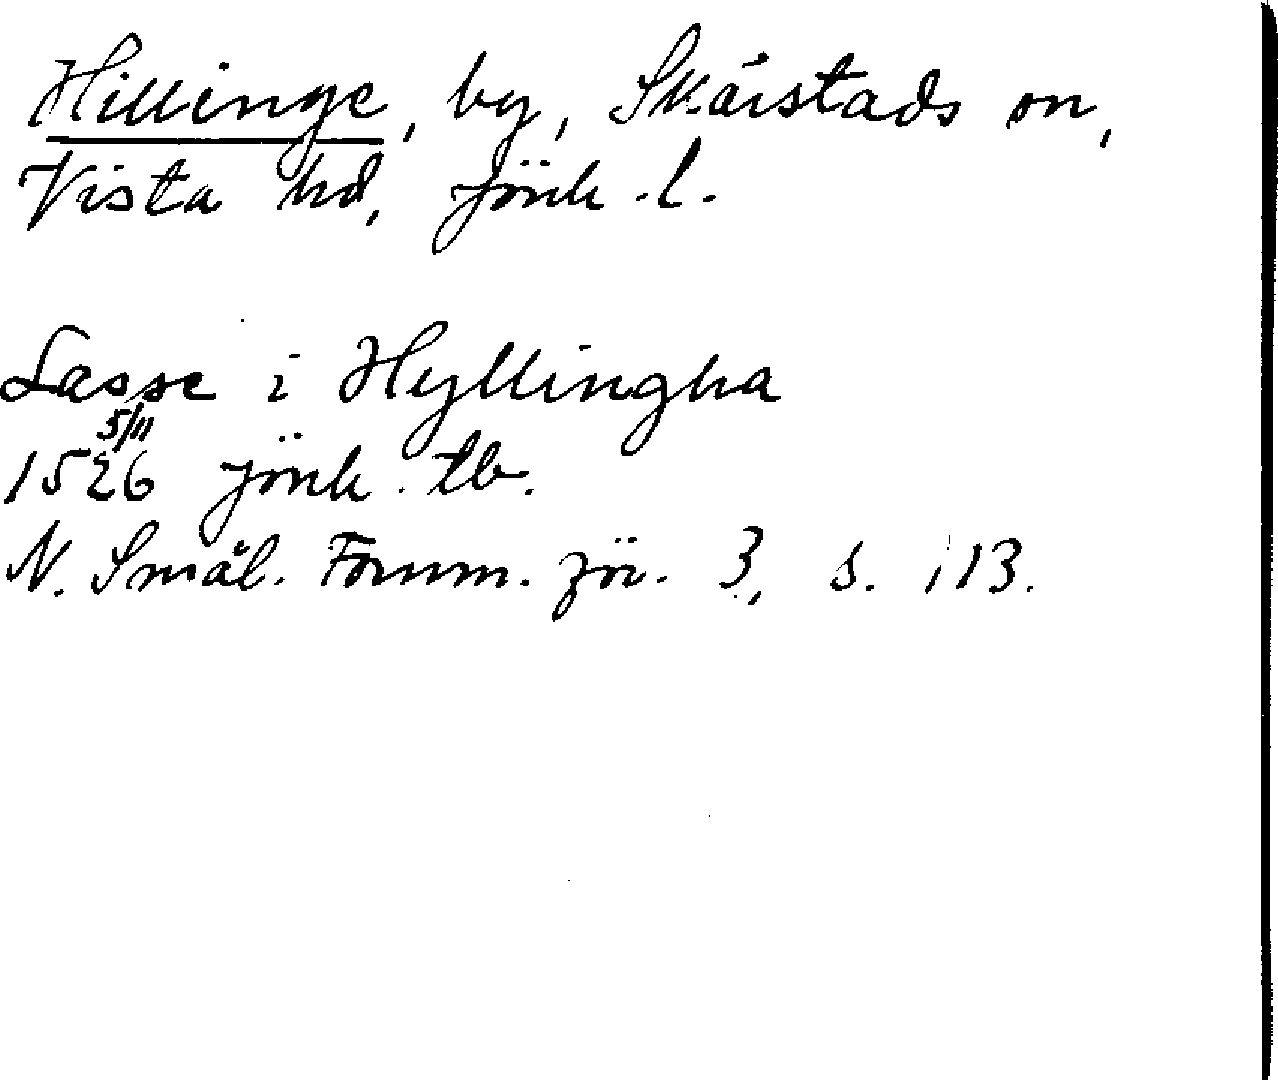 Hillinge, by, Skärstads sn,
Vista hd, Jönk.l.
Lasse i Hyllingha
5/11
1526 Jönk. tb.
N. Smål. Fornm. för. 3, s. 113.